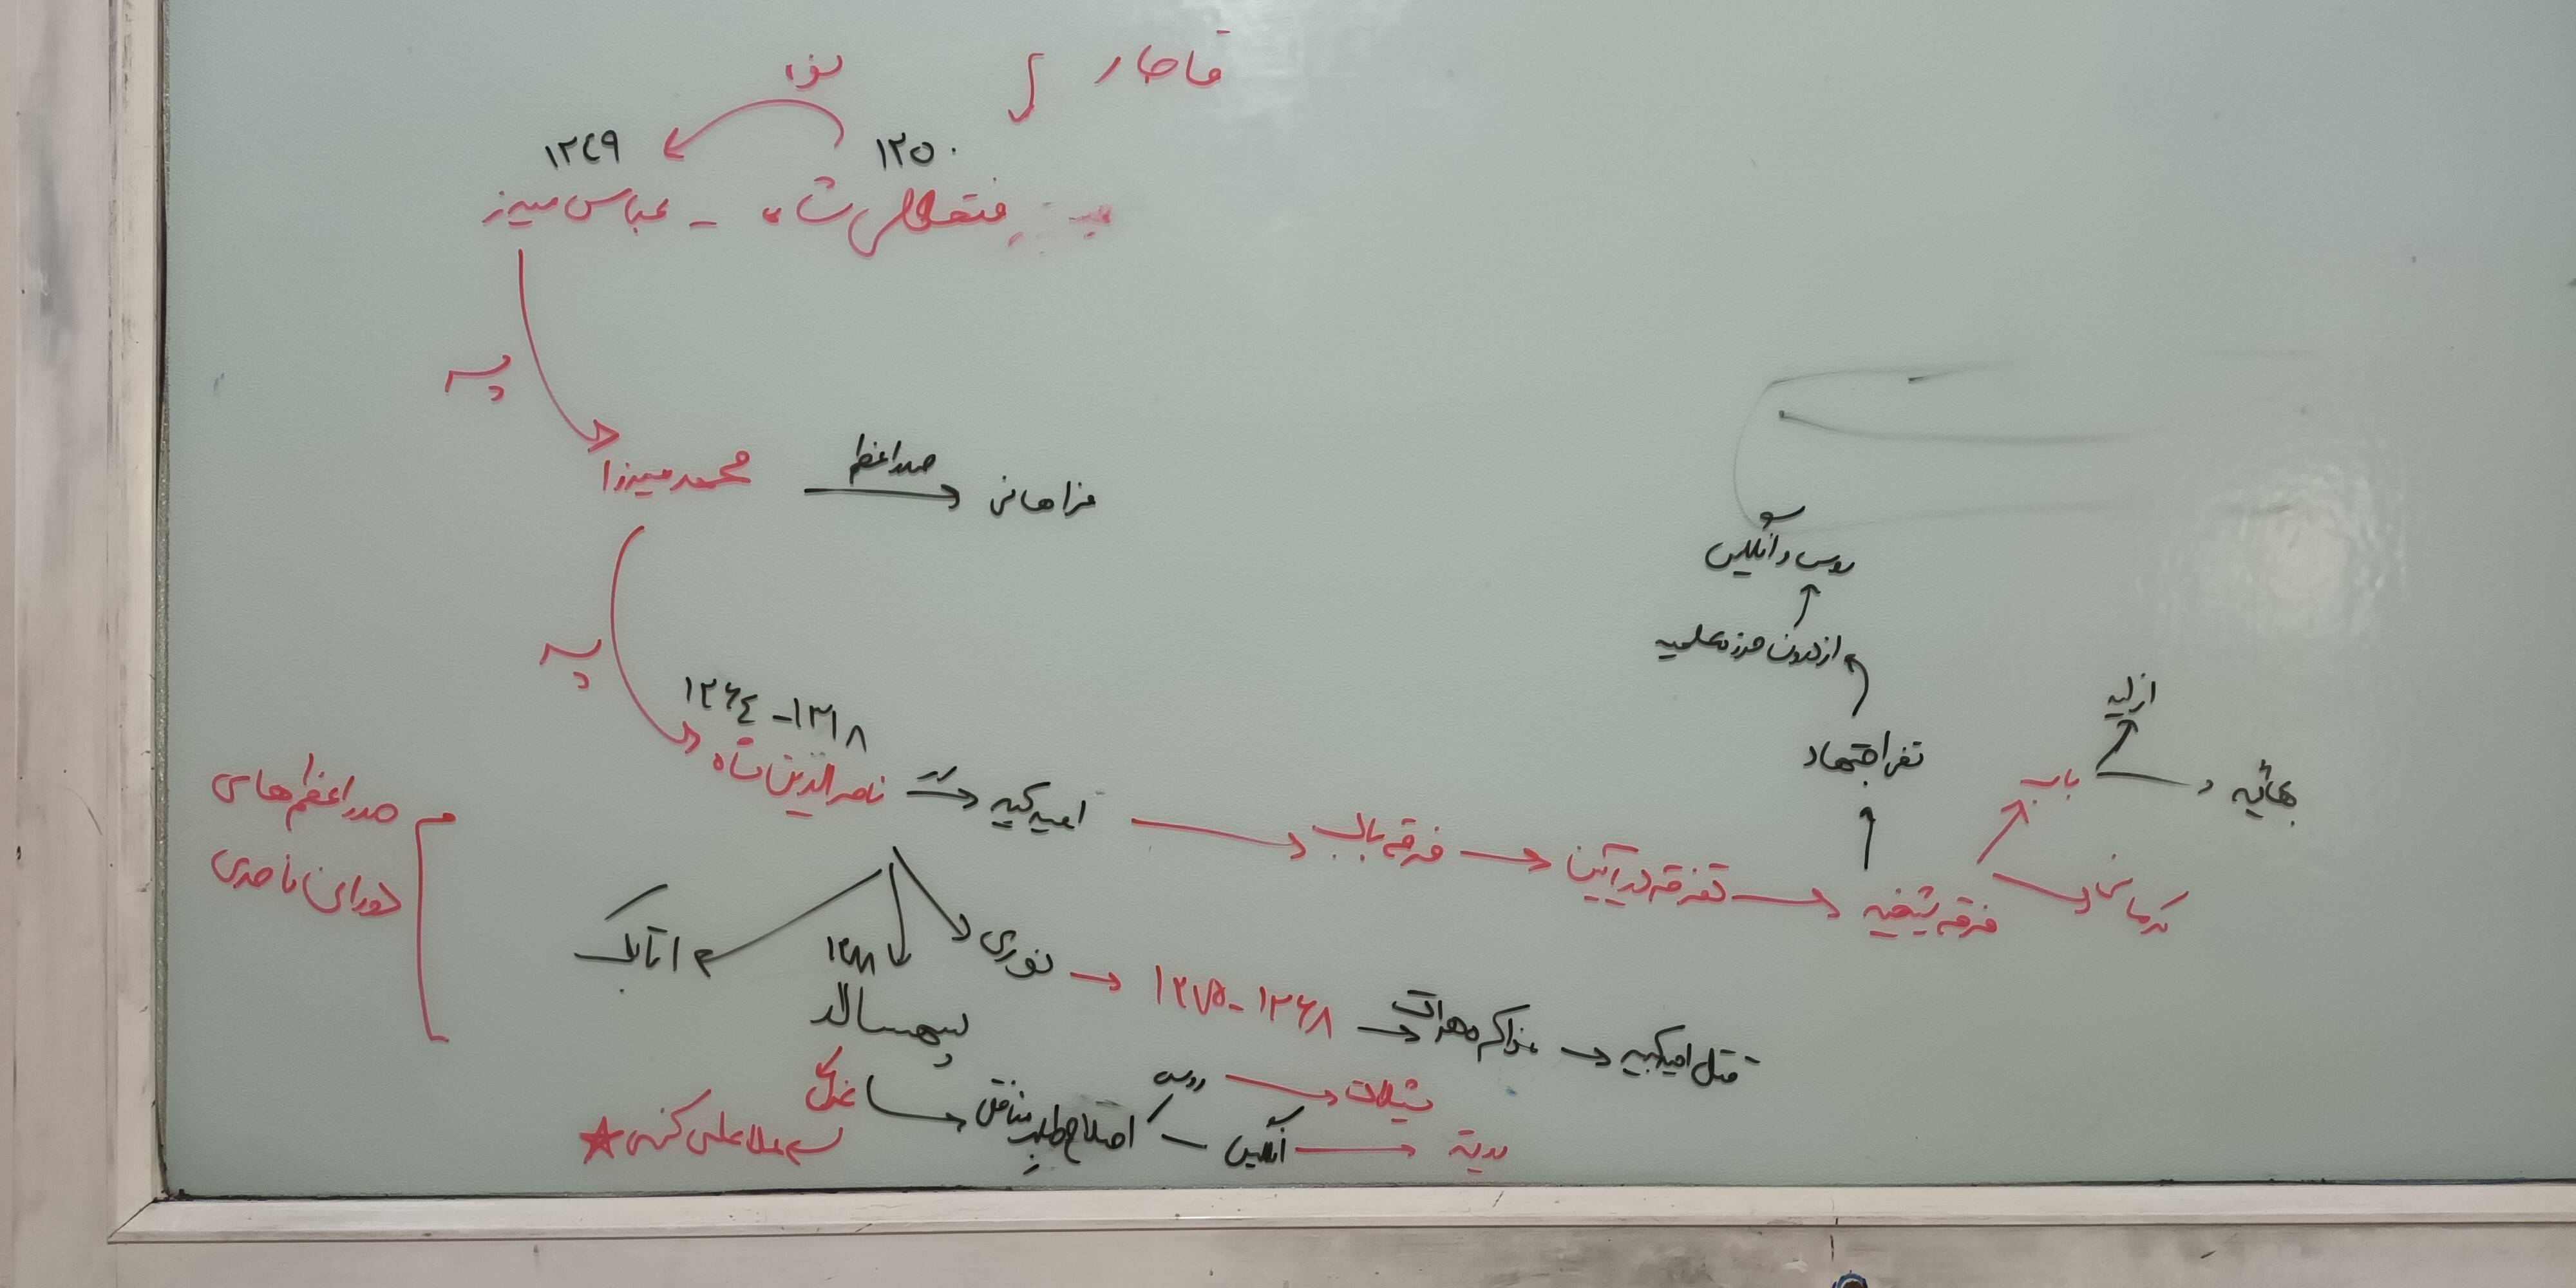 قاجار
۱۲۵۰
۱۲۴۹
فتحعلی شاه - عباس میرز
پسر
محمد میرزا
صدراعظم
فراهانی
پسر
۱۲۶۴ - ۱۳۱۸
ناصرالدین شاه
امیرکبیر
فرقه باب
تفرقه در آیین
فرقه شیخیه
باب
ازلیه
بهائیه
کرمانی
تفر اجتهاد
از درون حوزه علمیه
روس و انگلیس
صدراعظم‌های
دوران ناصری
اتابک
سپهسالار
نوری
۱۲۶۸ - ۱۲۷۵
مذاکره هرات
قتل امیرکبیر
عزل
ملا علی کنی
اصلاح طلب منافق
روس
شیلات
انگلیس